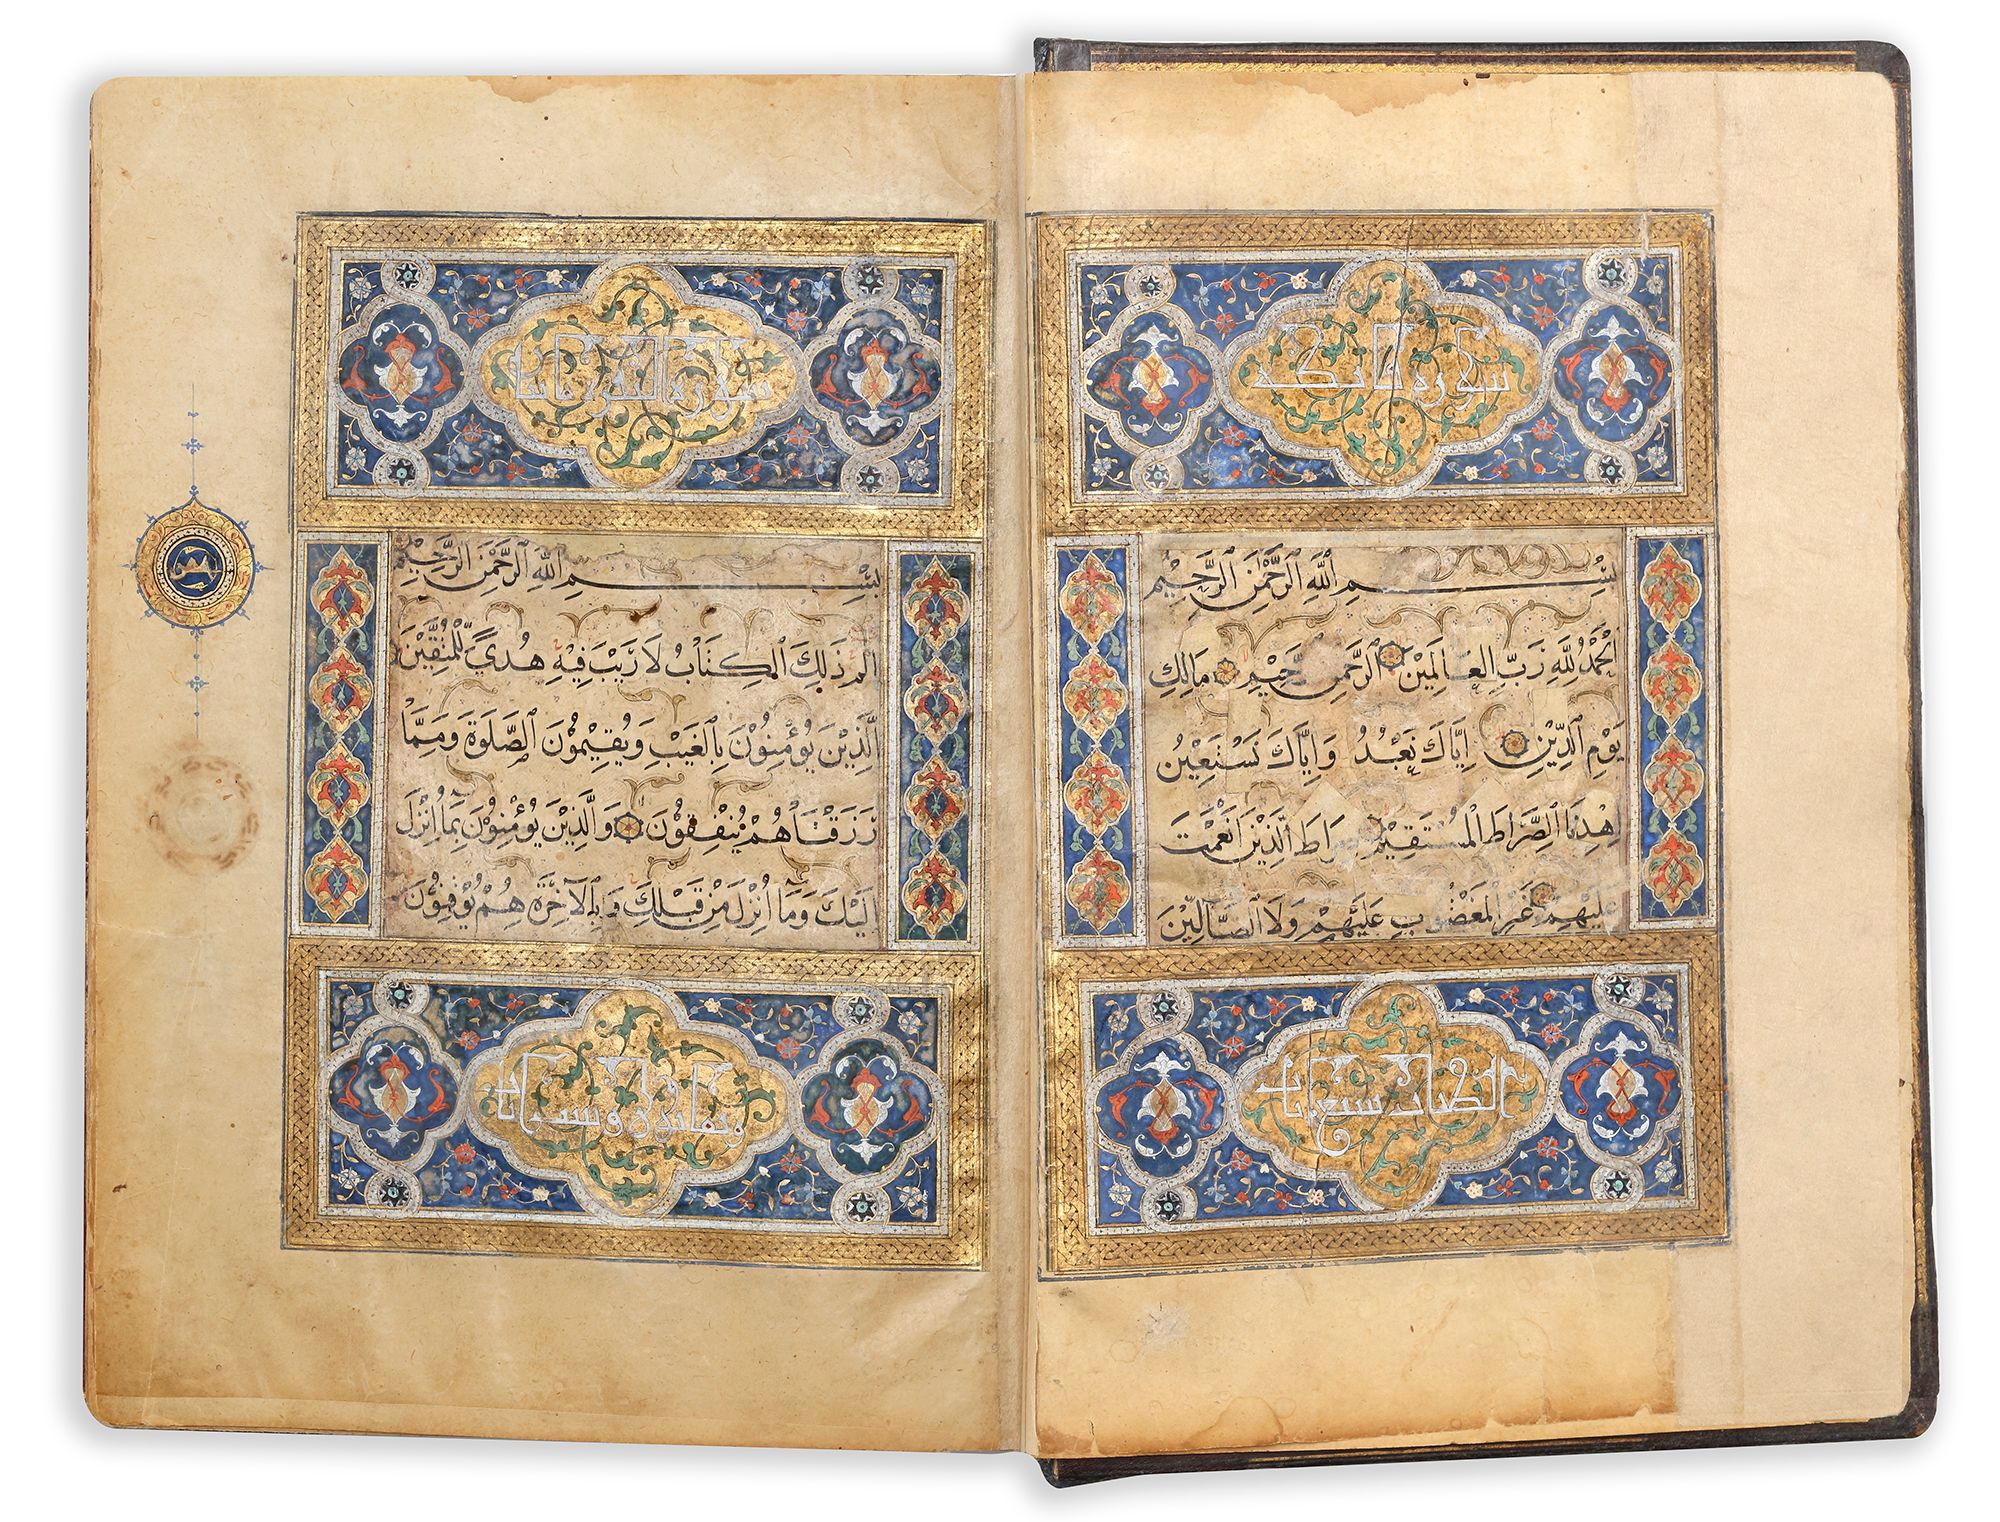 سورة فاتحة
بِسْمِ اللهِ الرَّحْمٰنِ الرَّحِيْمِ
اَلْحَمْدُ لِلّٰهِ رَبِّ الْعَالَمِيْنَ اَلرَّحْمٰنِ رَّحِيْمِ مَالِكِ
يَوْمِ الدِّيْنِ اِيَّاكَ نَعْبُدُ وَاِيَّاكَ نَسْتَعِيْنُ
هْدِنَا الصِّرَاطَ الْمُسْتَقِيْمَ صِرَاطَ الَّذِيْنَ اَنْعَمْتَ
عَلَيْهِمْ غَيْرِ الْمَغْضُوْبِ عَلَيْهِمْ وَلَا الضَّآلِّيْنَ
الكتاب سبع ايات
سورة البقرة مايتا
بِسْمِ اللهِ الرَّحْمٰنِ الرَّحِيْمِ
الم ذٰلِكَ الْكِتَابُ لَا رَيْبَ فِيْهِ هُدًى لِّلْمُتَّقِيْنَ
الَّذِيْنَ يُؤْمِنُوْنَ بِالْغَيْبِ وَيُقِيْمُوْنَ الصَّلٰوةَ وَمِمَّا
رَزَقْنَاهُمْ يُنْفِقُوْنَ وَالَّذِيْنَ يُؤْمِنُوْنَ بِمَا اُنْزِلَ
اِلَيْكَ وَمَا اُنْزِلَ مِنْ قَبْلِكَ وَبِالْآخِرَةِ هُمْ يُوْقِنُوْنَ
وثمانون وست ايات